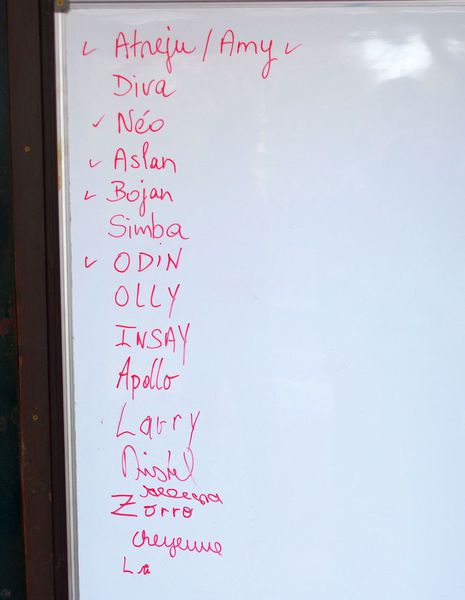 ✓ Atreju / Amy ✓
Diva
✓ Néo
✓ Aslan
✓ Bojan
Simba
✓ ODIN
OLLY
INSAY
Apollo
Larry
Zorro
cheyenne